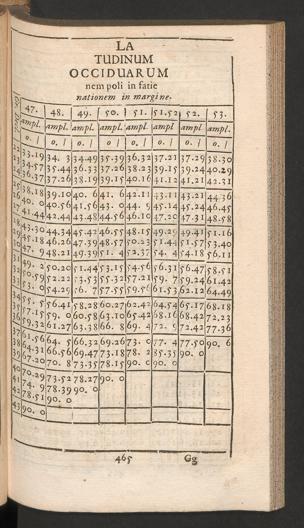 LA
TUDINUM
OCCIDUARUM
nem poli in fatie
nationem in margine.
47. 48. 49. 50. 51. 51.52 52. 53.
ampl. ampl. ampl. ampl. ampl. ampl. ampl. ampl.
34. 3 34.49 35.39 36.32 37.21 37.29 38.30
35.44 36.33 37.26 38.23 39.15 39.24 40.29
36.37 37.26 38.19 39.15 40.16 41.12 41.21 42.31
38.18 39.10 40. 6 41. 6 42.11 43.11 43.21 44.36
40.56 41.56 43. 0 44. 9 45.14 45.24 46.45
41.44 42.44 43.48 44.56 46.10 47.20 47.31 48.58
43.30 44.34 45.42 46.55 48.15 49.29 49.41 51.16
45.18 46.26 47.39 48.57 50.23 51.44 51.57 53.40
48.21 49.39 51. 4 52.37 54. 4 54.18 56.11
50.20 51.44 53.15 54.56 56.31 56.47 58.51
52.22 53.53 55.32 57.21 59. 7 59.24 61.42
54.29 56. 7 57.55 59.56 61.53 62.12 64.49
56.41 58.28 60.27 62.42 64.54 65.17 68.18
59. 0 60.58 63.10 65.42 68.16 68.42 72.23
59.32 61.27 63.38 66. 8 69. 4 72. 9 72.42 77.36
61.56 64. 5 66.32 69.26 73. 0 77. 4 77.50 90. 0
64.31 66.56 69.47 73.18 78. 2 85.35 90. 0
67.20 70. 8 73.35 78.15 90. 0 90. 0
70.29 73.52 78.27 90. 0
74. 9 78.38 90. 0
78.51 90. 0
90. 0
465 Gg